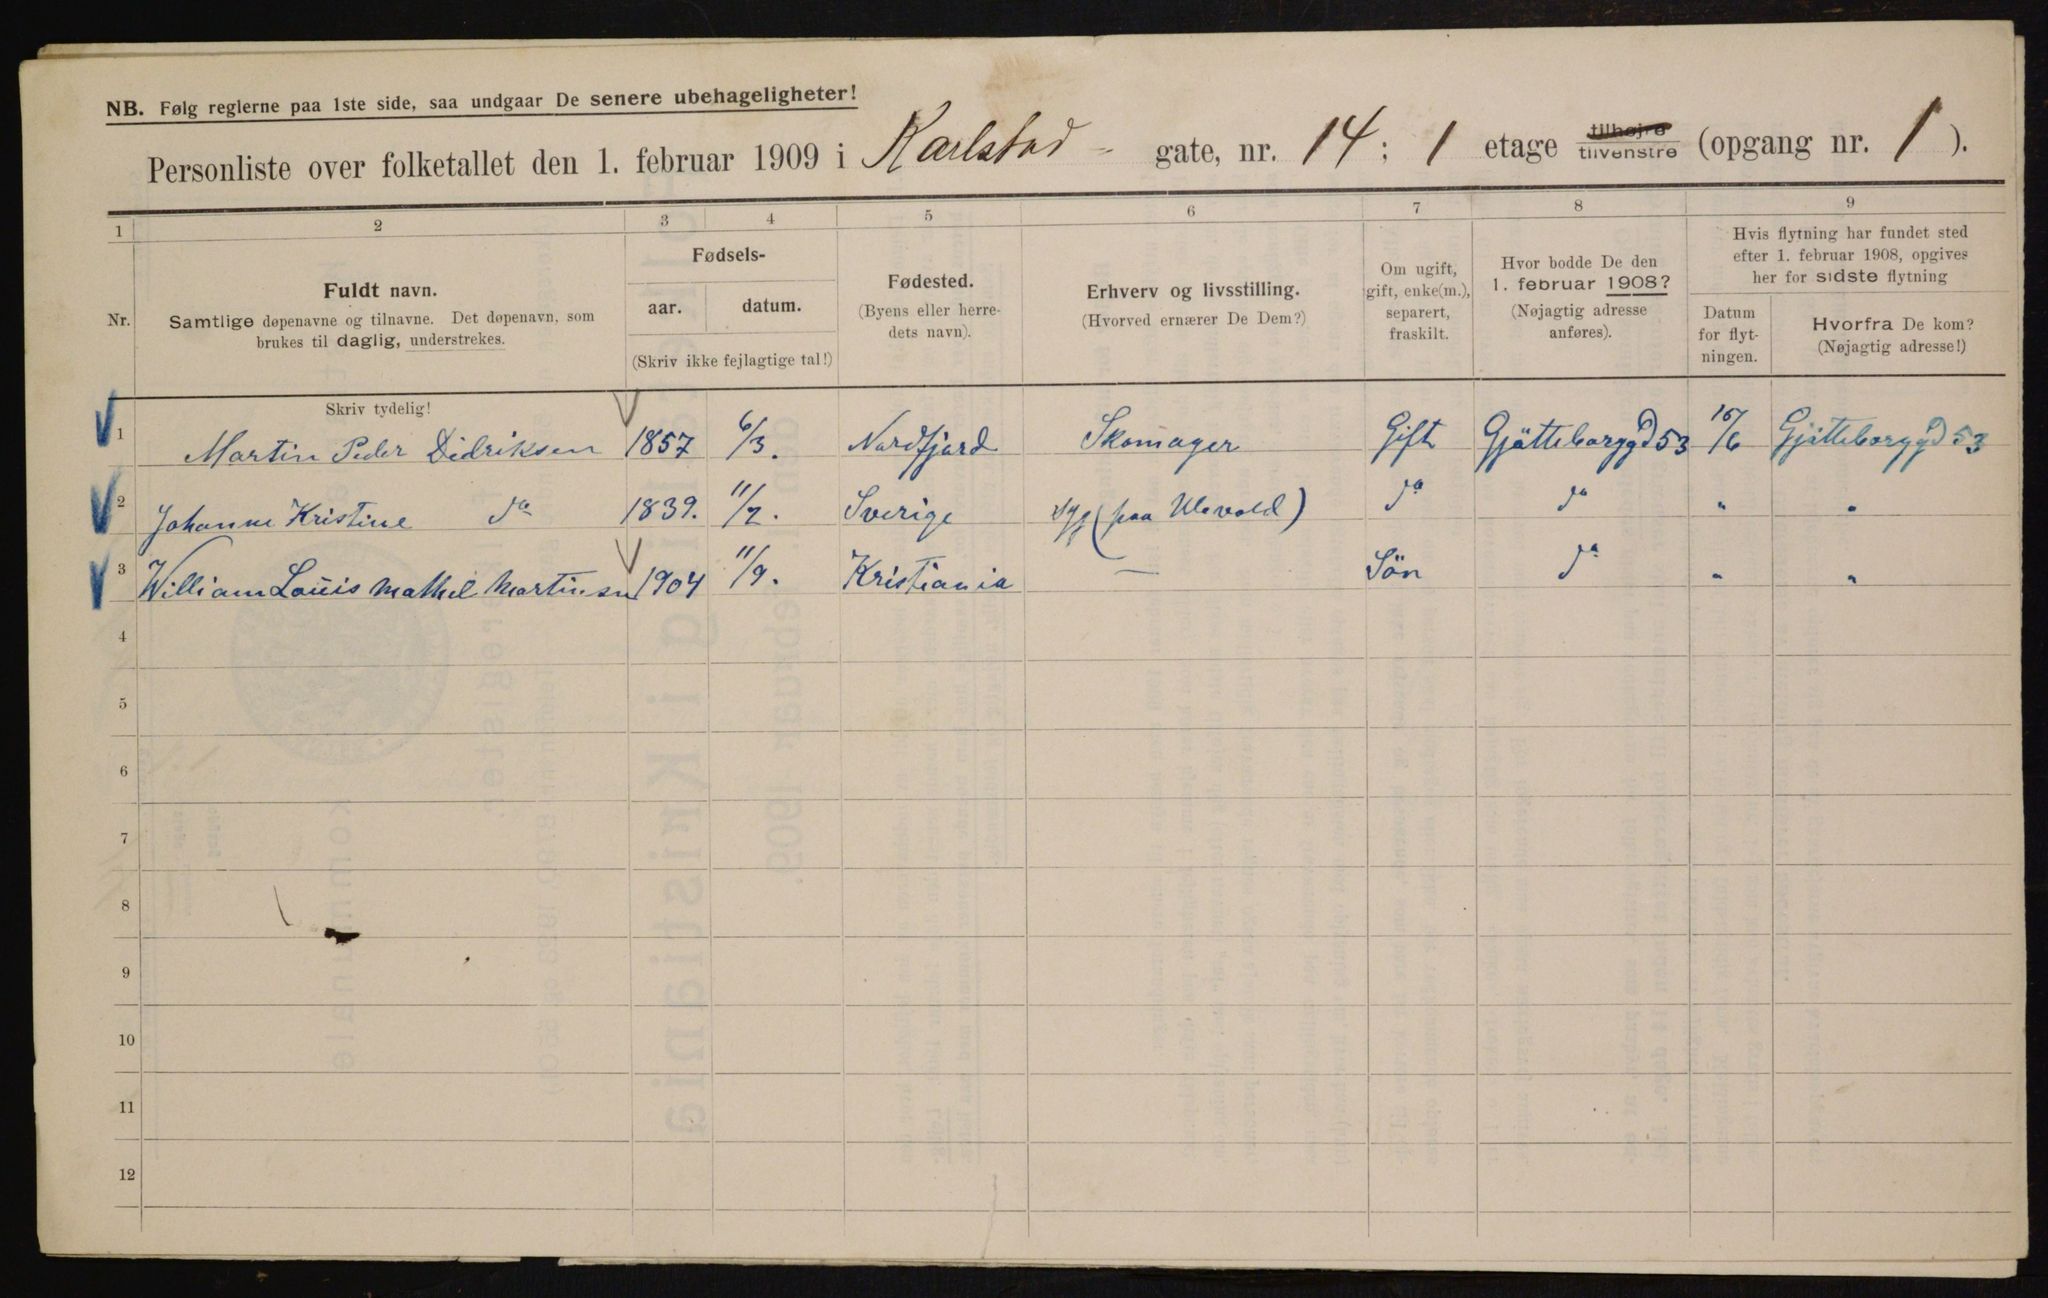 NB. Følg reglerne paa 1ste side, saa undgaar De senere ubehageligheter!
Personliste over folketallet den 1. februar 1909 i Karlstad- gate, nr. 14; 1 etage tilhøjre tilvenstre (opgang nr. 1).
1 2 3 4 5 6 7 8 9
Nr.
Fuldt navn.
Samtlige døpenavne og tilnavne. Det døpenavn, som
brukes til daglig, understrekes.
Fødsels-
aar. datum.
(Skriv ikke fejlagtige tal!)
Fødested.
(Byens eller herre-
dets navn).
Erhverv og livsstilling.
(Hvorved ernærer De Dem?)
Om ugift,
gift, enke(m.),
separert,
fraskilt.
Hvor bodde De den
1. februar 1908?
(Nøjagtig adresse
anføres).
Hvis flytning har fundet sted
efter 1. februar 1908, opgives
her for sidste flytning
Datum
for flyt-
ningen.
Hvorfra De kom?
(Nøjagtig adresse!)
Skriv tydelig!
1 Martin Peder Didriksen 1857 6/3. Nordfjord Skomager Gift Gjötteborggd 53 15/6 Gjötteborggd 53
2 Johanne Kristine do 1839. 11/2. Sverige syg (paa Ulevold) do do " "
3 William Louis Mathel Martinsen 1904 11/9. Kristiania — Sön do " "
4
5
6
7
8
9
10
11
12